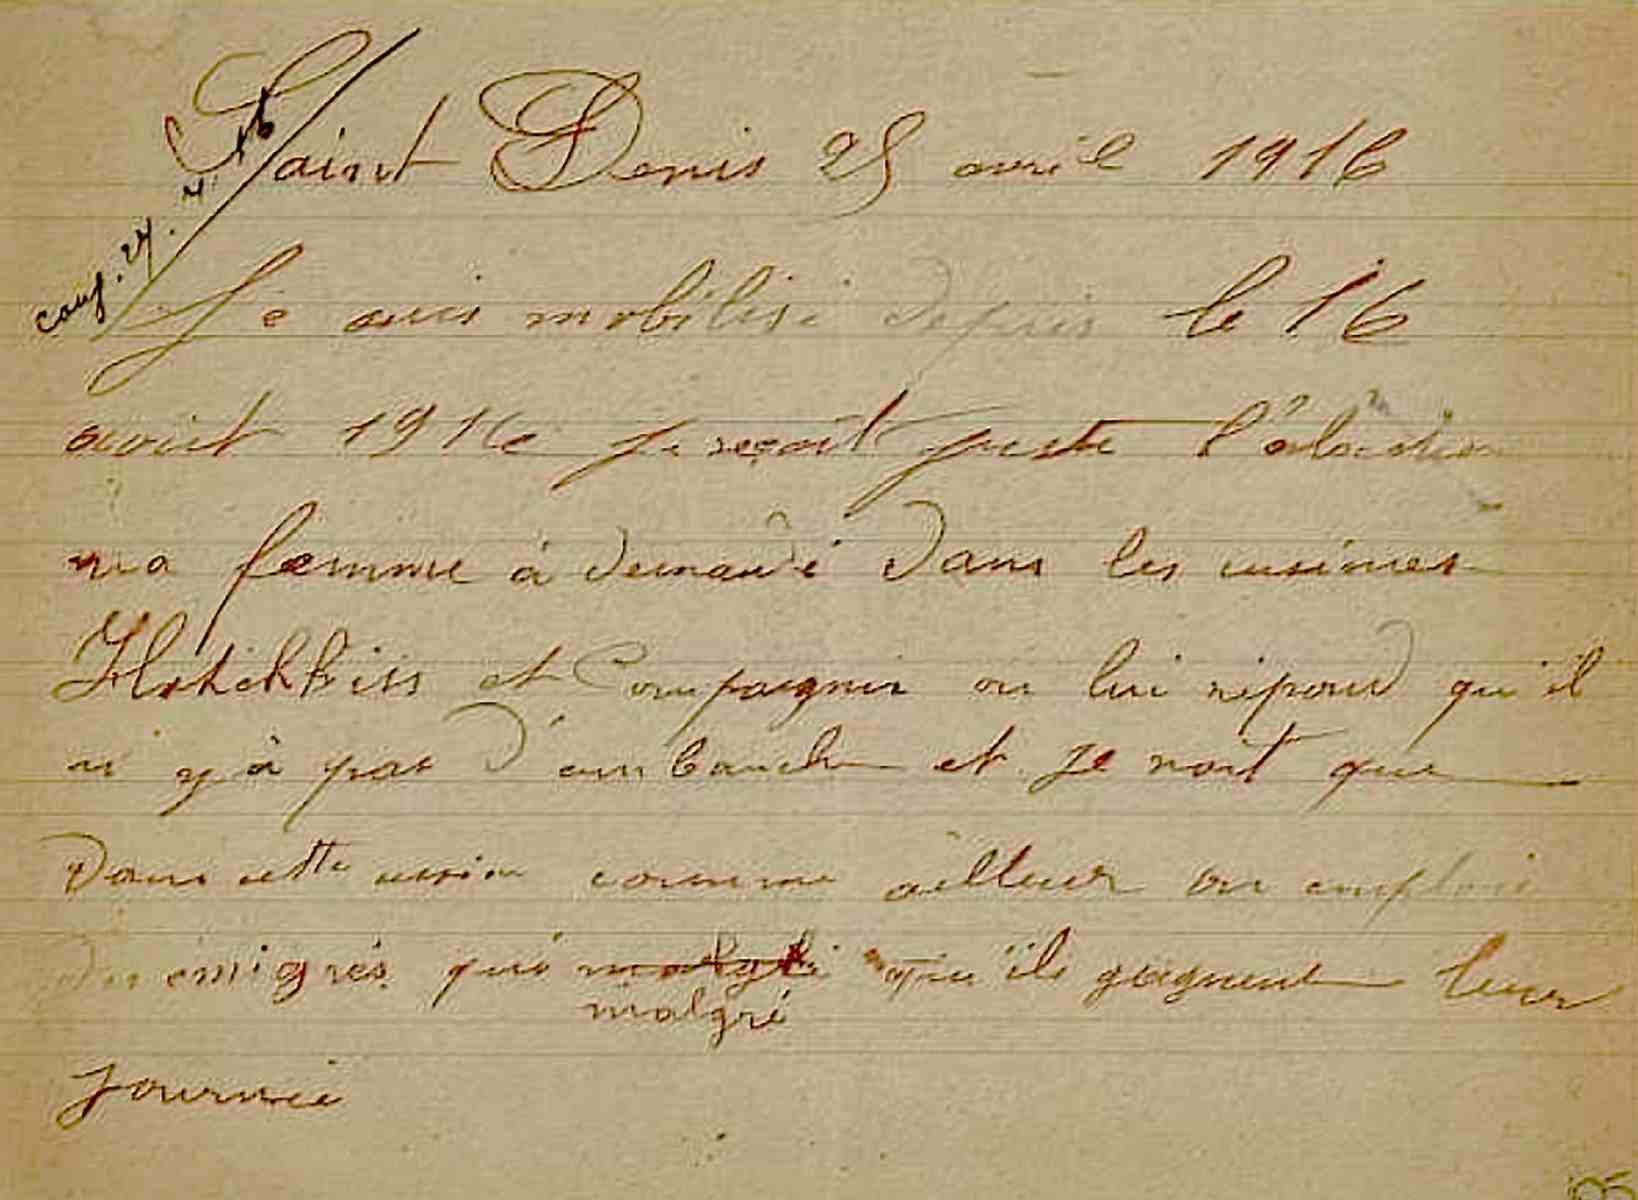 Saint Denis 25 avril 1916
Je suis mobilisé depuis le 16
avout 1914 je reçoit juste l'alocation
ma femme à demandé dans les usines
Hotchkiss et Compagnie on lui répond qu'il
n'y à pas d'embauche et je voit que
dans cette usine comme ailleur on emploi
des émigrés qui malgré qu'ils gagnent leur
malgré
journée